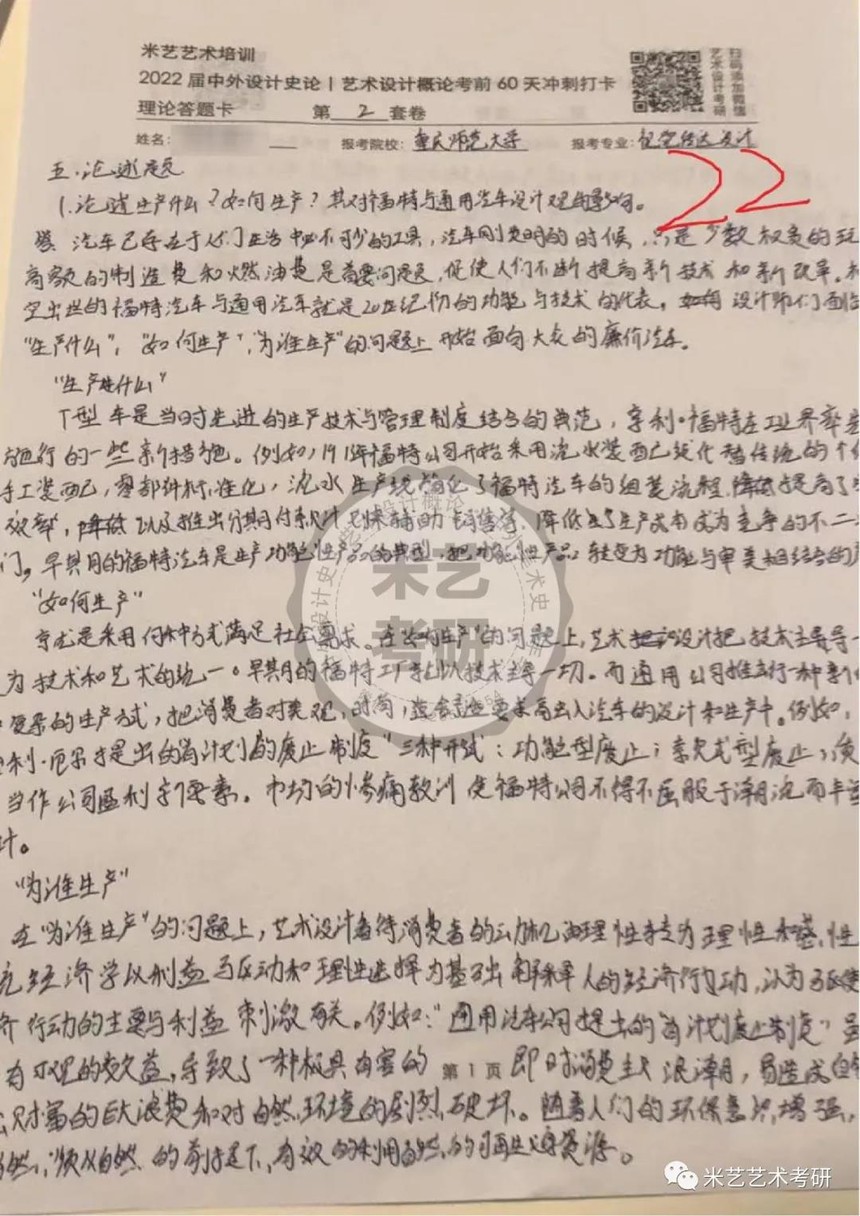 米艺艺术培训
2022届中外设计史论丨艺术设计概论考前60天冲刺打卡
理论答题卡 第 2 套卷
扫码添加微信
艺术设计考研
姓名： 报考院校：重庆师范大学 报考专业：视觉传达设计
22
五.论述题
1.论述生产什么？如何生产？其对福特与通用汽车设计观的影响。
汽车已存在于人们生活中必不可少的工具，汽车刚发明的时候，只是少数权贵的玩
高额的制造费和燃油费是首要问题，促使人们不断提高新技术和新改革。
空出世的福特汽车与通用汽车就是20世纪初的功能与技术的代表，设计师们面临
"生产什么"，"如何生产"，"为谁生产"的问题上开始面向大众的廉价汽车。
"生产什么"
T型车是当时先进的生产技术与管理制度结合的典范，亨利·福特在工业界率
施行的一些新措施。例如，191年福特公司开始采用流水装配线代替传统的个
手工装配，零部件标准化，流水生产线简化了福特汽车的组装流程，提高了
效率，以及推出分期付款计划来辅助销售等，降低了生产成本成为竞争的不二
门。早期的福特汽车是生产功能性产品的典型，把功能性产品转变为功能与审美相结合的
"如何生产"
享或是采用何种方式满足社会需求，在如何生产"的问题上，艺术设计把技术主导
为技术和艺术的统一。早期的福特工厂就以技术主导一切。而通用公司推行一种新
复杂的生产方式，把消费者对美观，时尚，等要求高出入汽车的设计和生产中。例如，
利·厄尔提出的有计划的废止制度"三种形式：功能型废止；款式型废止；质
当作公司盈利的要素。市场的惨痛教训使福特公司不得不屈服于潮流而
计。
"为谁生产"
在"为谁生产"的问题上，艺术设计看待消费者的动机由理性转为理性和感性
经济学以利益与反动和理性选择为基础解释人的经济行动，认为
济行动的主要与利益刺激有关。例如："通用汽车公司提出的有计划废止制度"虽
有可观的效益，导致了一种极具有害的 第1页 即时消费主义浪潮，易造成
财富的巨大浪费和对自然环境的剧烈破坏。随着人们的环保意识增强，
然，顺从自然的前提下，有效的利用自然的可再生资源。
米艺
考研
米艺艺术考研